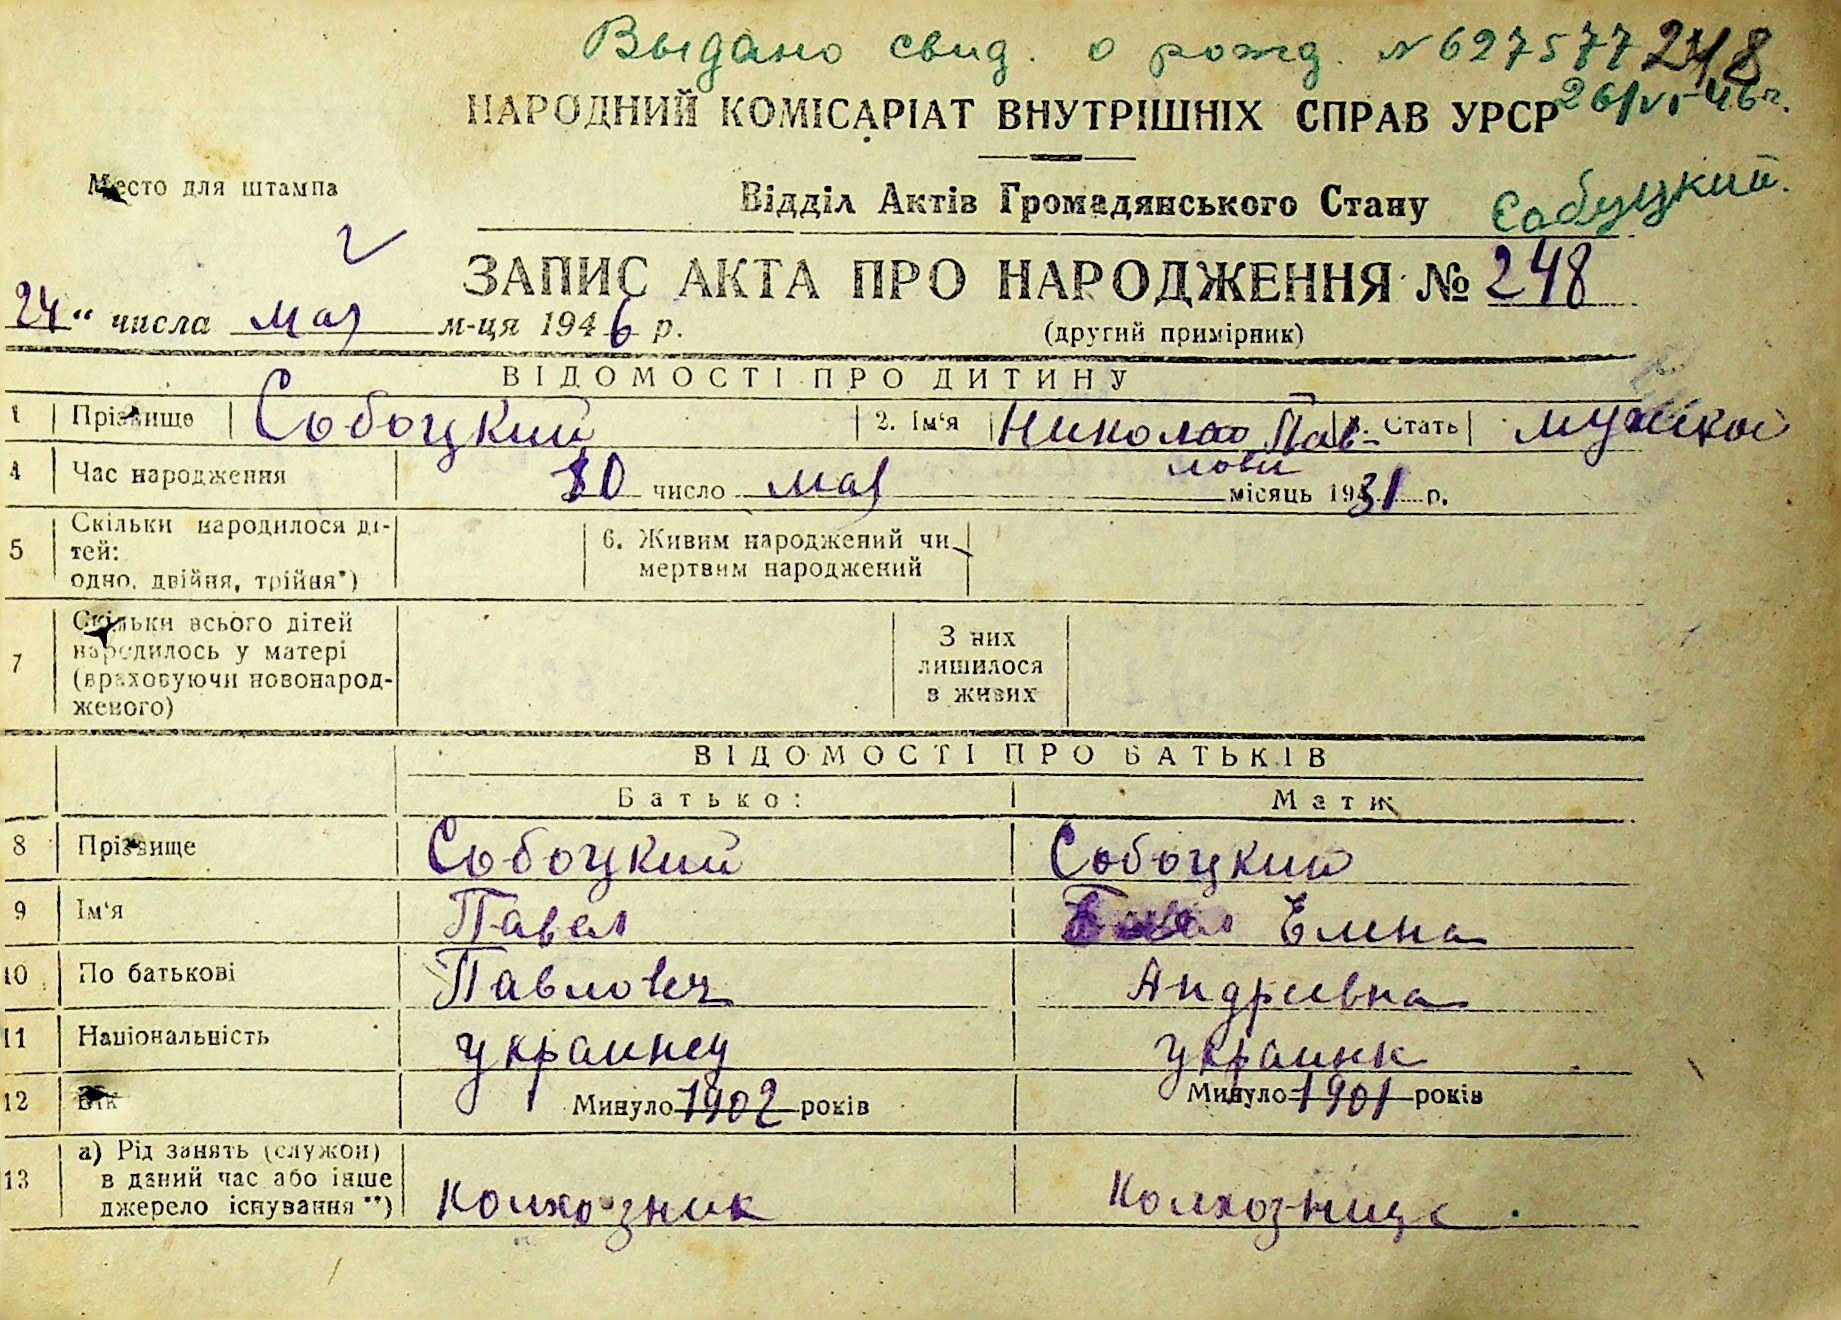 Выдано свид. о рожд. № 627577 248
НАРОДНИЙ КОМІСАРІАТ ВНУТРІШНІХ СПРАВ УРСР 26/VI-46 г.
Место для штампа
Відділ Актів Громадянського Стану Собуцкий.
ЗАПИС АКТА ПРО НАРОДЖЕННЯ № 248
24 " числа мая м-ця 1946 р. (другий примірник)
ВІДОМОСТІ ПРО ДИТИНУ
1 Прізвище Собоцкий 2. Ім'я Николай Пав- Стать мужской
лови
4 Час народження 10 число мая місяць 1931 р.
5 Скільки народилося ді-
тей:
одно, двійня, трійня*)
6. Живим народжений чи
мертвим народжений
7 Скільки всього дітей
народилось у матері
(враховуючи новонарод-
женого)
З них
лишилося
в живих
ВІДОМОСТІ ПРО БАТЬКІВ
Батько: Мати
8 Прізвище Собоцкий Собоцкий
9 Ім'я Павел Елена
10 По батькові Павлович Андреевна
11 Національність украинец украинк
12 Вік Минуло 1902 років Минуло 1901 років
13 а) Рід занять (служби)
в даний час або інше
джерело існування **) колхозник Колхозница